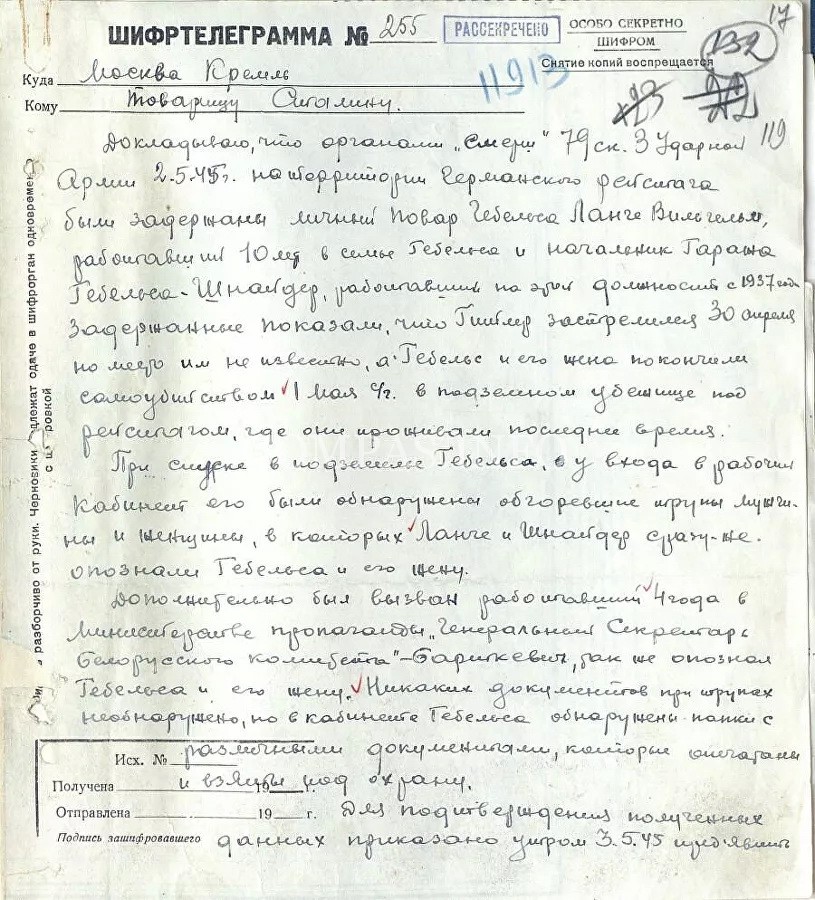 17
ШИФРТЕЛЕГРАММА № 255
РАССЕКРЕЧЕНО
ОСОБО СЕКРЕТНО
ШИФРОМ
Снятие копий воспрещается
132
Куда Москва Кремль
11913
Кому Товарищу Сталину.
119
Докладываю, что органами „Смерш" 79 ск. 3 Ударной
Армии 2.5.45г. на территории Германского рейхстага
были задержаны личный повар Гебельса Ланге Вильгельм,
работавший 10 лет в семье Гебельса и начальник Гаража
Гебельса - Шнайдер, работавший на этой должности с 1937 года
Задержанные показали, что Гитлер застрелился 30 апреля
но место им не известно, а Гебельс и его жена покончили
самоубийством 1 мая с/г. в подземном убежище под
рейхстагом, где они проживали последнее время.
При спуске в подземелье Гебельса, у входа в рабочий
кабинет его были обнаружены обгоревшие трупы мужчи-
ны и женщины, в которых Ланге и Шнайдер сразу-же
опознали Гебельса и его жену.
Дополнительно был вызван работавший 4 года в
министерстве пропаганды „Генеральный Секретарь
Белорусского комитета" - так же опознал
Гебельса и его жену. Никаких документов при трупах
необнаружено, но в кабинете Гебельса обнаружены папки с
различными документами, которые опечатаны
и взяты под охрану.
Для подтверждения полученных
данных приказано утром 3.5.45 предъявить
Исх. №
Получена
Отправлена 19 г.
Подпись зашифровавшего
разборчиво от руки. Черновики длежат сдаче в шифрорган одновремен
ровкой